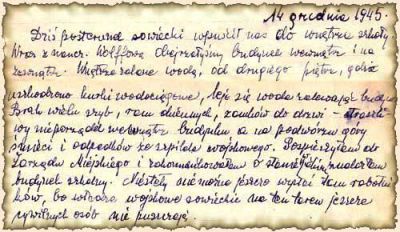 14 grudnia 1945.
Dziś posterunek sowiecki wpuścił nas do wnętrza szkoły
Wraz z naucz. Wolffową obejrzeliśmy budynek wewnątrz i na
zewnątrz. Wnętrze zalane wodą, od drugiego piętra, gdzie
uszkodzono krolki wodociągowe, leje się woda zalewając budynek
Brak wielu szyb, ram okiennych, zamków do drzwi - straszli-
wy nieporządek wewnątrz budynku a na podwórzu góry
śmieci i odpadków ze szpitala wojskowego. Pospieszyłem do
Zarządu Miejskiego i zakomunikowałem o stanie w jakim znalazłem
budynek szkolny. Niestety nie można jeszcze wysłać tam robotni-
ków, bo władze wojskowe sowieckie na ten teren jeszcze
cywilnych osób nie puszczają.